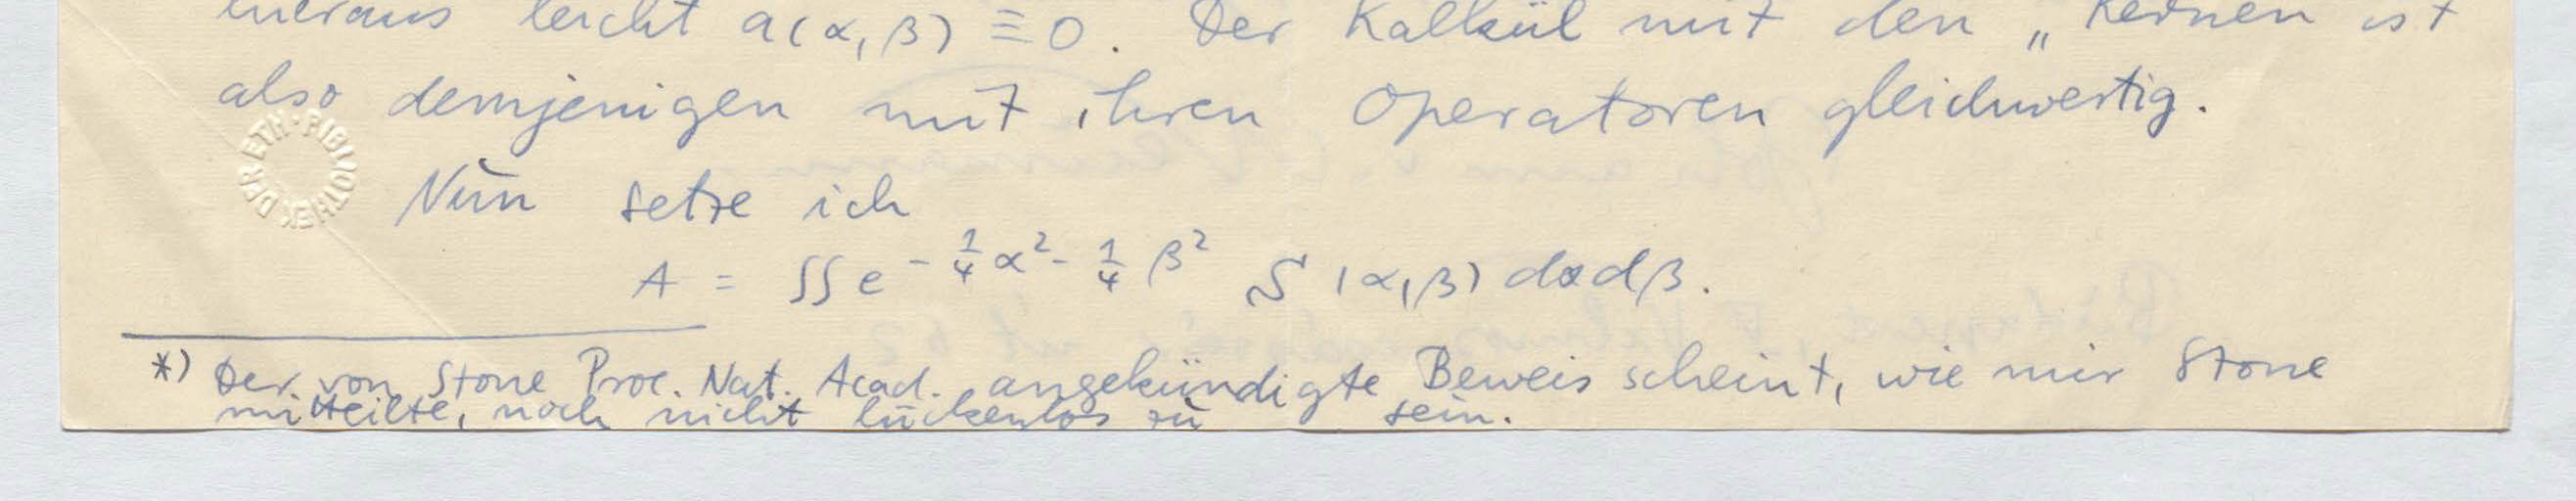 hieraus leicht a(α, β) ≡ 0. Der Kalkül mit den „Kernen ist
also demjenigen mit ihren Operatoren gleichwertig.
Nun setze ich
A = ∫∫ e^{-\frac{1}{4}α² - \frac{1}{4}β²} S(α, β) dα dβ.
*) Der von Stone Proc. Nat. Acad. angekündigte Beweis scheint, wie mir Stone
mitteilte, noch nicht lückenlos zu sein.
ETH-BIBLIOTHEK